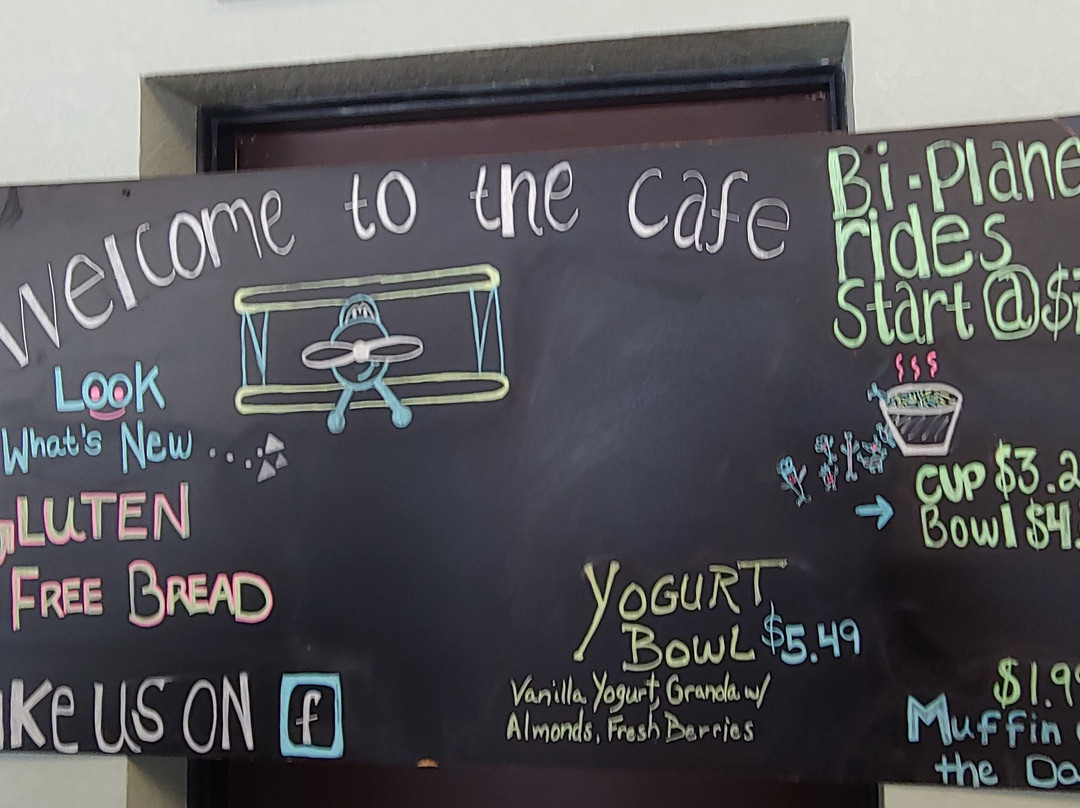 Welcome to the cafe
Look
What's New
GLUTEN
FREE BREAD
ike us on f
YOGURT
BOWL $5.49
Vanilla Yogurt, Granola w/
Almonds, Fresh Berries
Bi-Plane
rides
start @ $
CUP $3.2
Bowl $4.
$1.99
Muffin
the Da